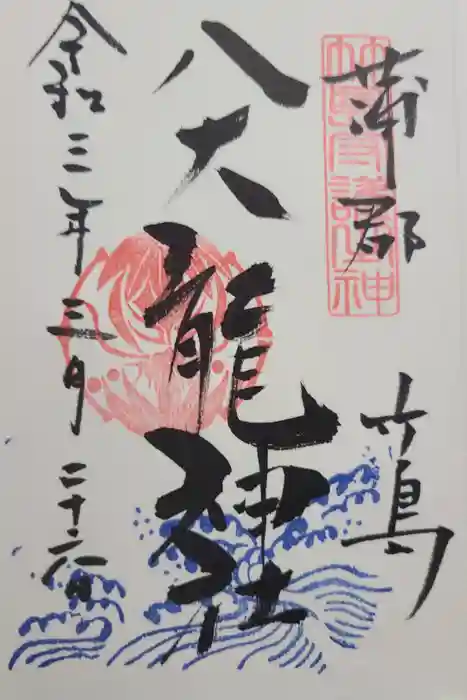 蒲郡
竹島
竹島守護神
八大龍神社
令和三年三月二十六日